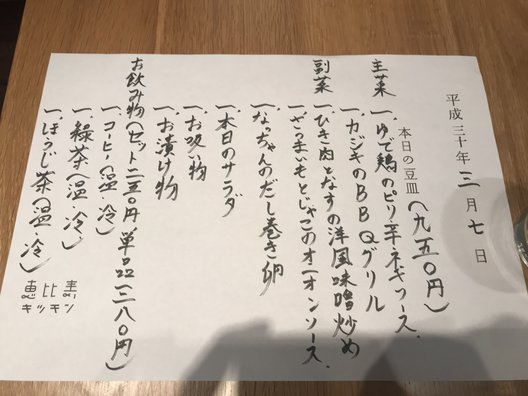 平成三十年三月七日
本日の豆皿(九五〇円)
主菜
一、ゆで鶏のピリ辛ネギソース
一、カジキのBBQグリル
一、ひき肉となすの洋風味噌炒め
副菜
一、さつまいもとじゃこのオニオンソース
一、なっちゃんのだし巻き卵
一、本日のサラダ
一、お吸い物
一、お漬け物
お飲み物(セット二五〇円 単品三八〇円)
一、コーヒー(温・冷)
一、緑茶(温・冷)
一、ほうじ茶(温・冷)
恵比寿
キッチン